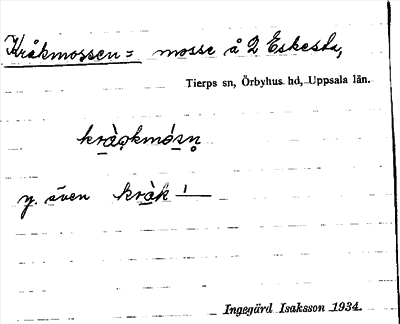 Kråkmossen = mosse å 2 Eskesta,
Tierps sn, Örbyhus hd, Uppsala län.
kràǫkmósn̥
y. även kràk ˈ—
Ingegärd Isaksson 1934.